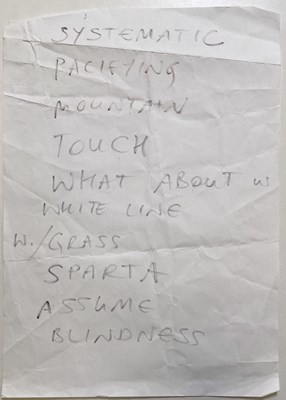 SYSTEMATIC
PACIFYING
MOUNTAIN
TOUCH
WHAT ABOUT us
WHITE LINE
W./GRASS
SPARTA
ASSUME
BLINDNESS